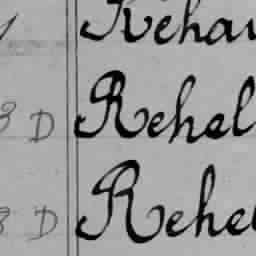 Rehau
8 D Rehal
8 D Rehe